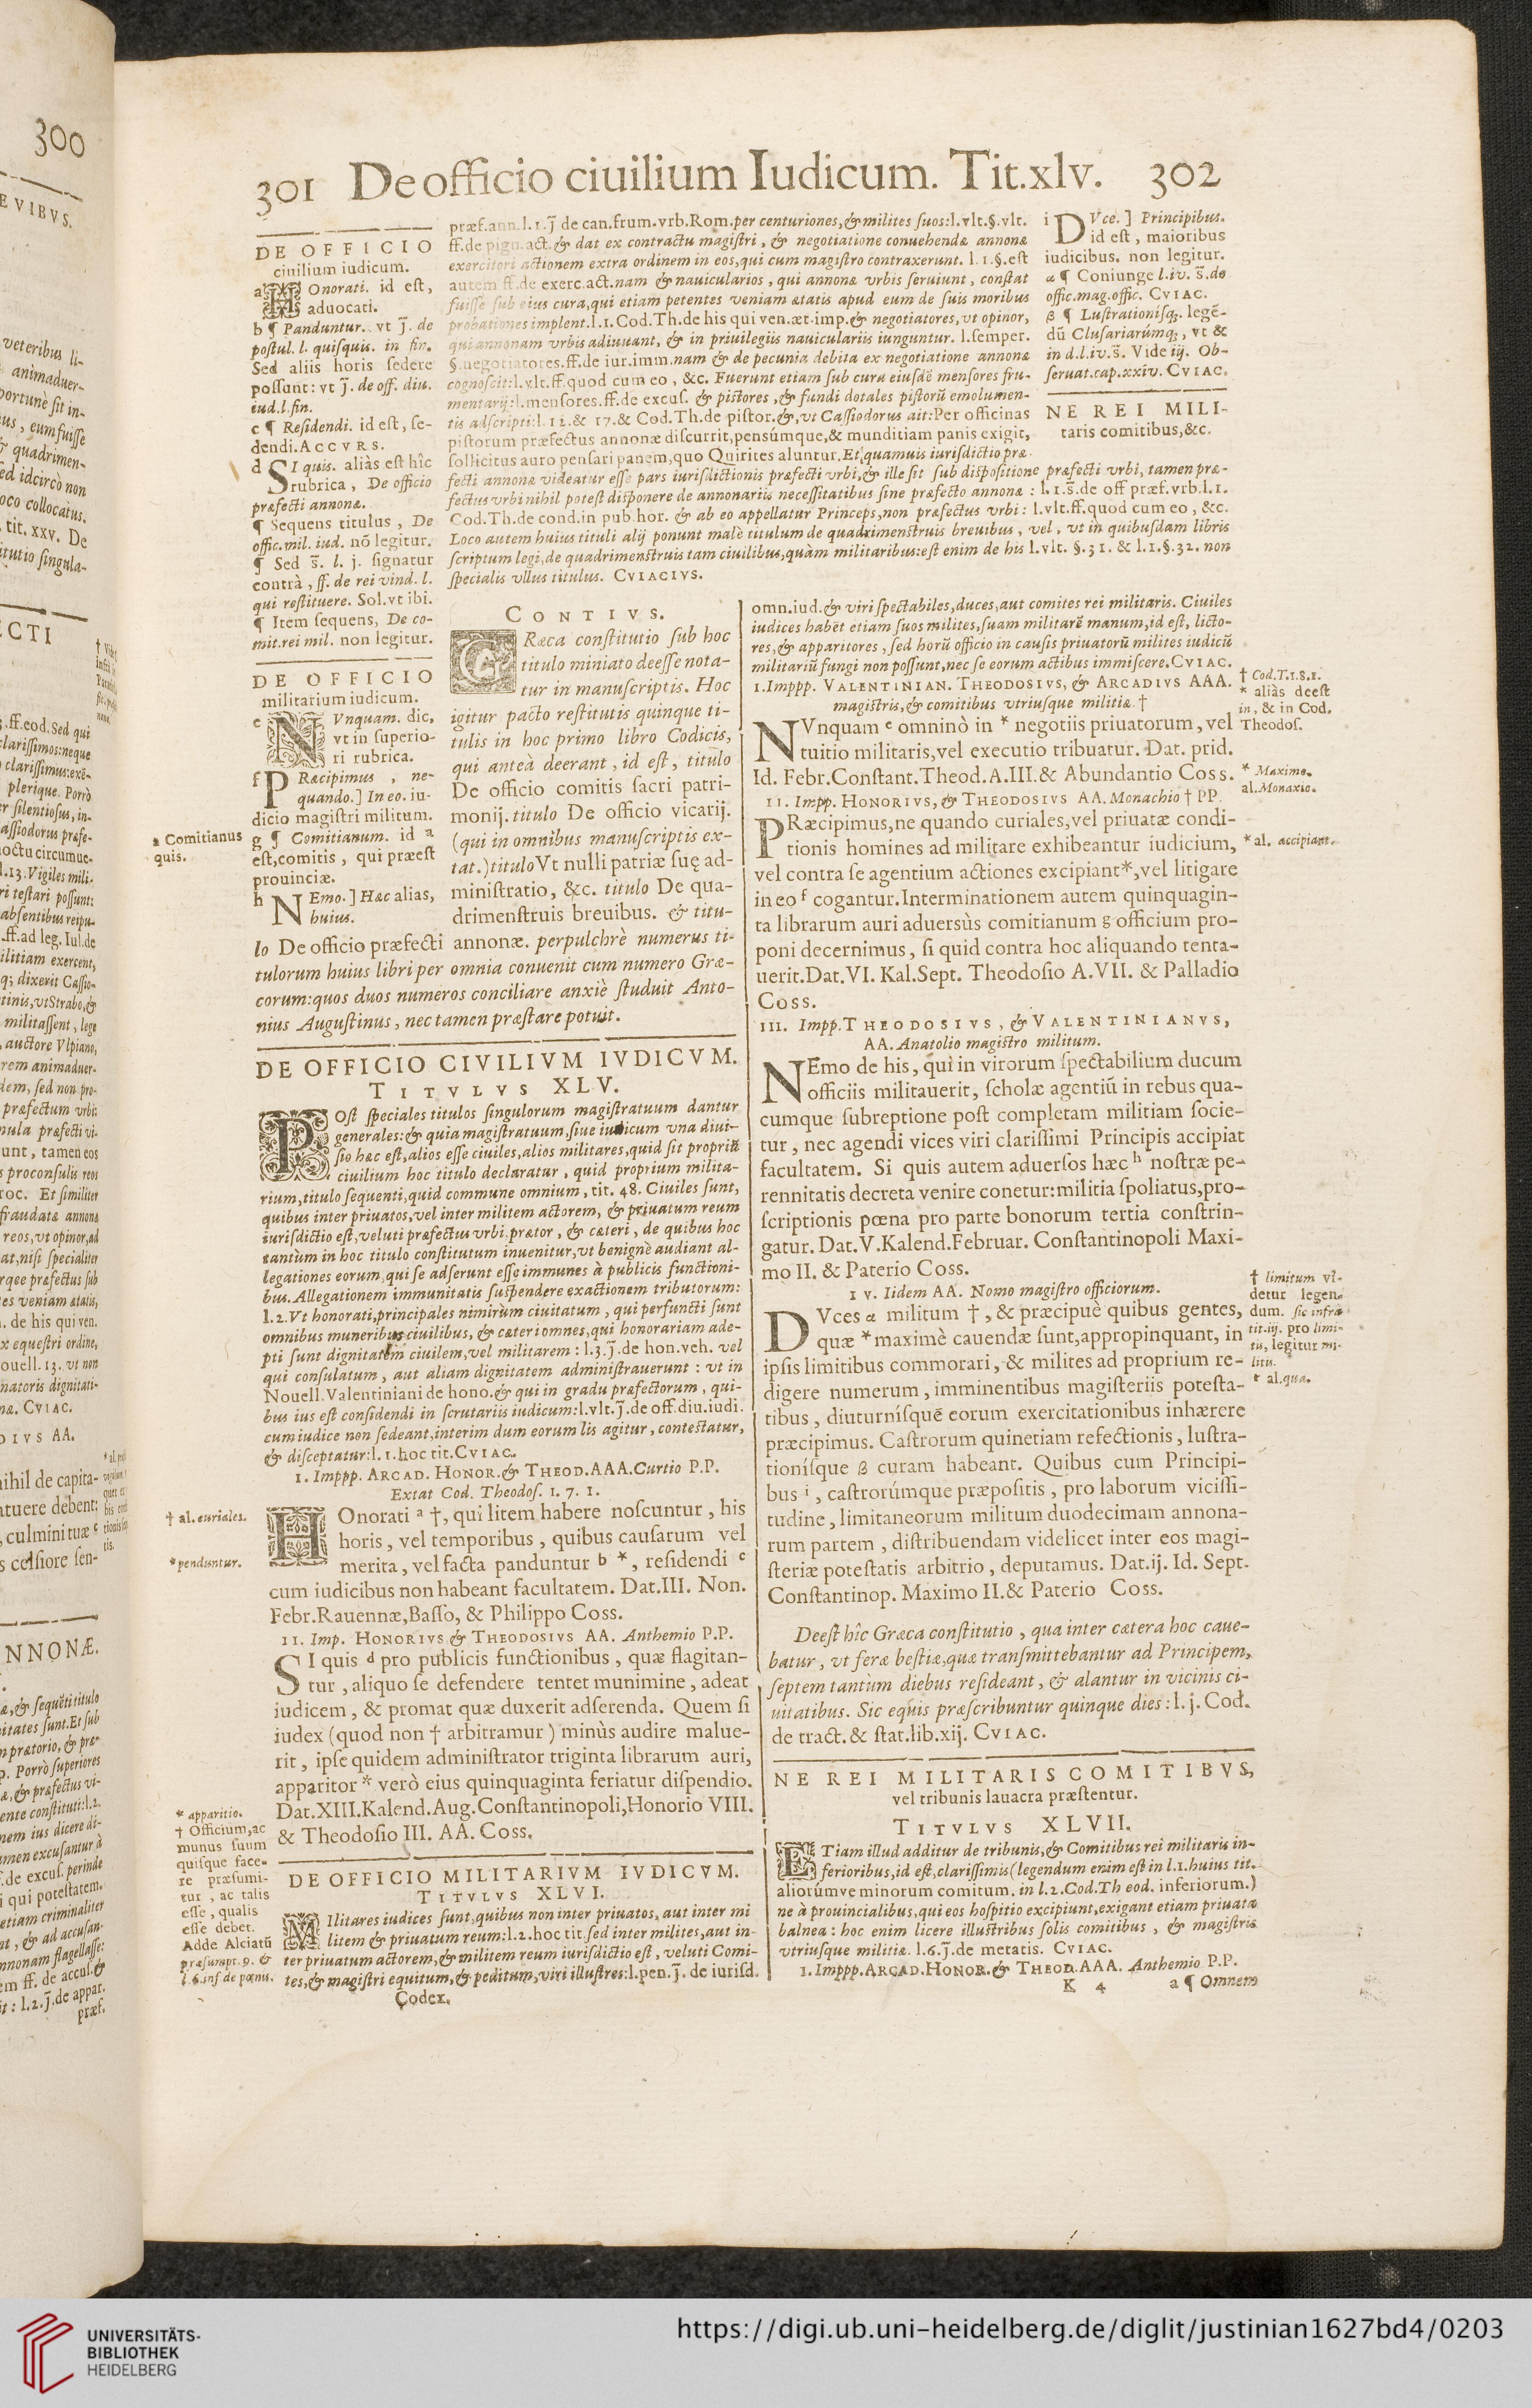 301 De officio ciuilium Iudicum. Tit.xlv. 302
DE OFFICIO
ciuilium iudicum.
a Honorati. id est,
aduocati.
b ¶ Panduntur. vt j̃. de
postul. l. quisquis. in fin.
Sed aliis horis sedere
possunt: vt j̃. de off. diu.
iud.l.fin.
c ¶ Residendi. id est, se-
dendi. ACCVRS.
d SI quis. aliàs est hîc
rubrica, De officio
præfecti annonæ.
¶ Sequens titulus, De
offic.mil. iud. nõ legitur.
¶ Sed s̃. l. j. signatur
contrà, ff. de rei vind. l.
qui restituere. Sol.vt ibi.
¶ Item sequens, De co-
mit.rei mil. non legitur.
DE OFFICIO
militarium iudicum.
e NVnquam. dic,
vt in superio-
ri rubrica.
f PRæcipimus, ne-
quando.] In eo. iu-
dicio magistri militum.
g ¶ Comitianum. id a
est, comitis, qui præest
prouinciæ.
h NEmo.] Hæc alias,
huius.
a Comitianus
quis.
præf.ann.l.1.j̃ de can.frum.vrb.Rom.per centuriones,& milites suos:l.vlt.§.vlt.
ff.de pign.act.& dat ex contractu magistri, & negotiatione conuehendæ annonæ
exercitori actionem extra ordinem in eos,qui cum magistro contraxerunt. l.1.§.est
autem ff.de exerc.act.nam & nauicularios, qui annonæ vrbis seruiunt, constat
fuisse sub eius cura,qui etiam petentes veniam ætatis apud eum de suis moribus
probationes implent.l.1.Cod.Th.de his qui ven.æt.imp.& negotiatores,vt opinor,
qui annonam vrbis adiuuant, & in priuilegiis nauiculariis iunguntur. l.semper.
§.negotiatores.ff.de iur.imm.nam & de pecunia debita ex negotiatione annonæ
cognoscit:l.vlt.ff.quod cum eo, &c. Fuerunt etiam sub cura eiusdẽ mensores fru-
mentarij:l.mensores.ff.de excus. & pistores,& fundi dotales pistorũ emolumen-
tis adscripti:l.12.& 17.& Cod.Th.de pistor.&,vt Cassiodorus ait:Per officinas
pistorum præfectus annonæ discurrit,pensúmque,& munditiam panis exigit,
sollicitus auro pensari panem,quo Quirites aluntur.Et,quamuis iurisdictio præ-
fecti annonæ videatur esse pars iurisdictionis præfecti vrbi,& ille sit sub dispositione præfecti vrbi, tamen præ-
fectus vrbi nihil potest disponere de annonariis necessitatibus sine præfecto annonæ : l.1.s̃.de off præf.vrb.l.1.
Cod.Th.de cond.in pub.hor. & ab eo appellatur Princeps,non præfectus vrbi: l.vlt.ff.quod cum eo, &c.
Loco autem huius tituli alij ponunt malè titulum de quadrimenstruis breuibus, vel, vt in quibusdam libris
scriptum legi,de quadrimenstruis tam ciuilibus,quàm militaribus:est enim de his l.vlt. §.31. & l.1.§.32. non
specialis vllus titulus. CVIACIVS.
i DVce.] Principibus.
id est, maioribus
iudicibus. non legitur.
α ¶ Coniunge l.iv. s̃.de
offic.mag.offic. CVIAC.
β ¶ Lustrationísq;. legẽ-
dũ Clusariarúmq;, vt &
in d.l.iv.s̃. Vide iij. Ob-
seruat.cap.xxiv. CVIAC.
NE REI MILI-
taris comitibus,&c.
CONTIVS.
GRæca constitutio sub hoc
titulo miniato deesse nota-
tur in manuscriptis. Hoc
igitur pacto restitutis quinque ti-
tulis in hoc primo libro Codicis,
qui anteà deerant, id est, titulo
De officio comitis sacri patri-
monij. titulo De officio vicarij.
(qui in omnibus manuscriptis ex-
tat.) titulo Vt nulli patriæ suę ad-
ministratio, &c. titulo De qua-
drimenstruis breuibus. & titu-
lo De officio præfecti annonæ. perpulchrè numerus ti-
tulorum huius libri per omnia conuenit cum numero Græ-
corum:quos duos numeros conciliare anxiè studuit Anto-
nius Augustinus, nec tamen præstare potuit.
DE OFFICIO CIVILIVM IVDICVM.
TITVLVS XLV.
POst speciales titulos singulorum magistratuum dantur
generales:& quia magistratuum,siue iudicum vna diui-
sio hæc est,alios esse ciuiles,alios militares,quid sit propriũ
ciuilium hoc titulo declaratur, quid proprium milita-
rium,titulo sequenti,quid commune omnium, tit. 48. Ciuiles sunt,
quibus inter priuatos,vel inter militem actorem, & priuatum reum
iurisdictio est,veluti præfectus vrbi,prætor, & cæteri, de quibus hoc
tantùm in hoc titulo constitutum inuenitur,vt benignè audiant al-
legationes eorum,qui se adserunt esse immunes à publicis functioni-
bus. Allegationem immunitatis suspendere exactionem tributorum:
l.2.Vt honorati,principales nimirùm ciuitatum, qui perfuncti sunt
omnibus muneribus ciuilibus, & cæteri omnes,qui honorariam ade-
pti sunt dignitatem ciuilem,vel militarem : l.3.j̃.de hon.veh. vel
qui consulatum, aut aliam dignitatem administrauerunt : vt in
Nouell.Valentiniani de hono.& qui in gradu præfectorum, qui-
bus ius est considendi in scrutariis iudicum:l.vlt.j̃.de off.diu.iudi.
cum iudice non sedeant,interim dum eorum lis agitur, contestatur,
& disceptatur:l.1.hoc tit.CVIAC.
I. Imppp. ARCAD. HONOR.& THEOD.AAA.Curtio P.P.
Extat Cod. Theodos. 1. 7. 1.
HOnorati a †, qui litem habere noscuntur, his
horis, vel temporibus, quibus causarum vel
merita, vel facta panduntur b *, residendi c
cum iudicibus non habeant facultatem. Dat.III. Non.
Febr.Rauennæ,Basso, & Philippo Coss.
† al. curiales.
* penduntur.
II. Imp. HONORIVS & THEODOSIVS AA. Anthemio P.P.
SI quis d pro publicis functionibus, quæ flagitan-
tur, aliquo se defendere tentet munimine, adeat
iudicem, & promat quæ duxerit adserenda. Quem si
iudex (quod non † arbitramur) minùs audire malue-
rit, ipse quidem administrator triginta librarum auri,
apparitor * verò eius quinquaginta feriatur dispendio.
Dat.XIII.Kalend.Aug.Constantinopoli,Honorio VIII.
& Theodosio III. AA. Coss.
* apparitio.
† Officium,ac
munus suum
quisque face-
re præsumi-
tur, ac talis
esse, qualis
esse debet.
Adde Alciatũ
præsumpt.9. &
l.6.inf de pœnu.
DE OFFICIO MILITARIVM IVDICVM.
TITVLVS XLVI.
MIlitares iudices sunt,quibus non inter priuatos, aut inter mi
litem & priuatum reum:l.2.hoc tit.sed inter milites,aut in-
ter priuatum actorem,& militem reum iurisdictio est, veluti Comi-
tes,& magistri equitum,& peditum,viri illustres:l.pen.j̃. de iurisd.
Codex.
omn.iud.& viri spectabiles,duces,aut comites rei militaris. Ciuiles
iudices habẽt etiam suos milites,suam militarẽ manum,id est, licto-
res,& apparitores, sed horũ officio in causis priuatorũ milites iudicũ
militariũ fungi non possunt,nec se eorum actibus immiscere.CVIAC.
I.Imppp. VALENTINIAN. THEODOSIVS, & ARCADIVS AAA.
magistris,& comitibus vtriusque militiæ. †
NVnquam e omninò in * negotiis priuatorum, vel
tuitio militaris,vel executio tribuatur. Dat. prid.
Id. Febr.Constant.Theod.A.III.& Abundantio Coss.
† Cod.T.1.8.1.
* aliàs deest
in, & in Cod.
Theodos.
II. Impp. HONORIVS, & THEODOSIVS AA. Monachio † PP.
PRæcipimus,ne quando curiales,vel priuatæ condi-
tionis homines ad militare exhibeantur iudicium,
vel contra se agentium actiones excipiant*,vel litigare
in eo f cogantur.Interminationem autem quinquagin-
ta librarum auri aduersùs comitianum g officium pro-
poni decernimus, si quid contra hoc aliquando tenta-
uerit.Dat.VI. Kal.Sept. Theodosio A.VII. & Palladio
Coss.
* Maximo.
al.Monaxio.
* al. accipiant.
III. Impp.THEODOSIVS, & VALENTINIANVS,
AA. Anatolio magistro militum.
NEmo de his, qui in virorum spectabilium ducum
officiis militauerit, scholæ agentiũ in rebus qua-
cumque subreptione post completam militiam socie-
tur, nec agendi vices viri clarissimi Principis accipiat
facultatem. Si quis autem aduersos hæc h nostræ pe-
rennitatis decreta venire conetur:militia spoliatus,pro-
scriptionis pœna pro parte bonorum tertia constrin-
gatur. Dat.V.Kalend.Februar. Constantinopoli Maxi-
mo II. & Paterio Coss.
IV. Iidem AA. Nomo magistro officiorum.
DVces α militum †, & præcipuè quibus gentes,
quæ * maximè cauendæ sunt,appropinquant, in
ipsis limitibus commorari, & milites ad proprium re-
digere numerum, imminentibus magisteriis potesta-
tibus, diuturnísquẽ eorum exercitationibus inhærere
præcipimus. Castrorum quinetiam refectionis, lustra-
tionísque β curam habeant. Quibus cum Principi-
bus i, castrorúmque præpositis, pro laborum vicissi-
tudine, limitaneorum militum duodecimam annona-
rum partem, distribuendam videlicet inter eos magi-
steriæ potestatis arbitrio, deputamus. Dat.ij. Id. Sept.
Constantinop. Maximo II.& Paterio Coss.
† limitum vi-
detur legen-
dum. sic infra
tit.iij. pro limi-
tu, legitur mi-
litis.
* al.qua.
Deest hîc Græca constitutio, qua inter cætera hoc caue-
batur, vt feræ bestiæ,quæ transmittebantur ad Principem,
septem tantùm diebus resideant, & alantur in vicinis ci-
uitatibus. Sic equis præscribuntur quinque dies: l.j. Cod.
de tract.& stat.lib.xij. CVIAC.
NE REI MILITARIS COMITIBVS,
vel tribunis lauacra præstentur.
TITVLVS XLVII.
ETiam illud additur de tribunis,& Comitibus rei militaris in-
ferioribus,id est,clarissimis(legendum enim est in l.1.huius tit.
aliorúmve minorum comitum. in l.2.Cod.Th eod. inferiorum.)
ne à prouincialibus,qui eos hospitio excipiunt,exigant etiam priuata
balnea : hoc enim licere illustribus solis comitibus, & magistris
vtriusque militiæ. l.6.j̃.de metatis. CVIAC.
I.Imppp.ARCAD.HONOR.& THEOD.AAA. Anthemio P.P.
K 4 a ¶ Omnem
300
EVIBVS.
veteribus li-
animaduer-
ECTI
NNONÆ.
præf.
UNIVERSITÄTS-
BIBLIOTHEK
HEIDELBERG
https://digi.ub.uni-heidelberg.de/diglit/justinian1627bd4/0203